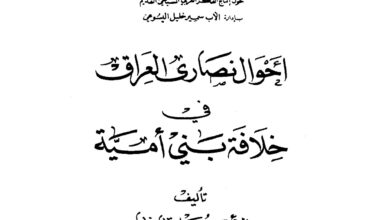 حول إنتاج الفكر العربي المسيحي القديم
بإدارة الأب سمير خليل اليسوعي
أحوال نصارى العراق
في
خلافة بني أمية
تأليف